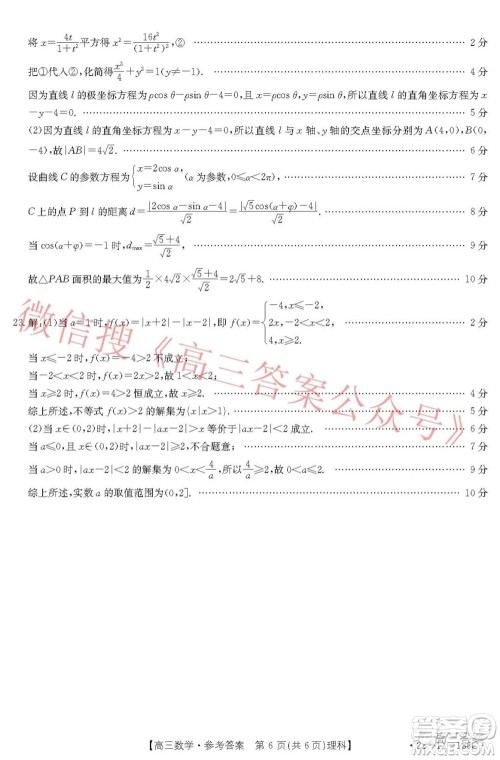 将 x=4t/(1+t²) 平方得 x²=16t²/(1+t²)²,② …… 2分
把①代入②,化简得 x²/4+y²=1(y≠-1). …… 4分
因为直线 l 的极坐标方程为 ρcos θ-ρsin θ-4=0,且 x=ρcos θ,y=ρsin θ,所以直线 l 的直角坐标方程为 x
-y-4=0. …… 5分
(2)因为直线 l 的直角坐标方程为 x-y-4=0,所以 l 与 x 轴、y 轴的交点坐标分别为 A(4,0),B(0,
-4),故|AB|=4√2. …… 6分
设曲线 C 的参数方程为{x=2cos α, y=sin α (α 为参数,0≤α<2π), …… 7分
C 上的点 P 到 l 的距离 d=|2cos α-sin α-4|/√2=|√5cos(α+φ)-4|/√2. …… 8分
当 cos(α+φ)=-1 时,dmax=(√5+4)/√2, …… 9分
故△PAB 面积的最大值为 1/2×4√2×(√5+4)/√2=2√5+8. …… 10分
23.解:(1)当 a=1 时,f(x)=|x+2|-|x-2|,即 f(x)={-4,x≤-2, 2x,-2<x<2, 4,x≥2. …… 2分
当 x≤-2 时,f(x)=-4>2 不成立;
当-2<x<2 时,f(x)=2x>2,
当 x≥2 时,f(x)=4>2 恒成立. …… 4分
综上所述,不等式 f(x)>2 的解集为{x|x>1}. …… 5分
(2)当 x∈(0,2)时,f(x)>x 成立等价于当 x∈(0,2)时,|ax-2|<2 成立. …… 6分
当 a≤0,且 x∈(0,2)时,|ax-2|≥2,不合题意; …… 7分
当 a>0 时,|ax-2|<2 的解集为 0<x<4/a,所以 4/a≥2,故 0<a≤2. …… 9分
综上所述,实数 a 的取值范围为(0,2]. …… 10分
微信搜《高三答案公众号》
【高三数学·参考答案 第 6 页(共 6 页)理科】